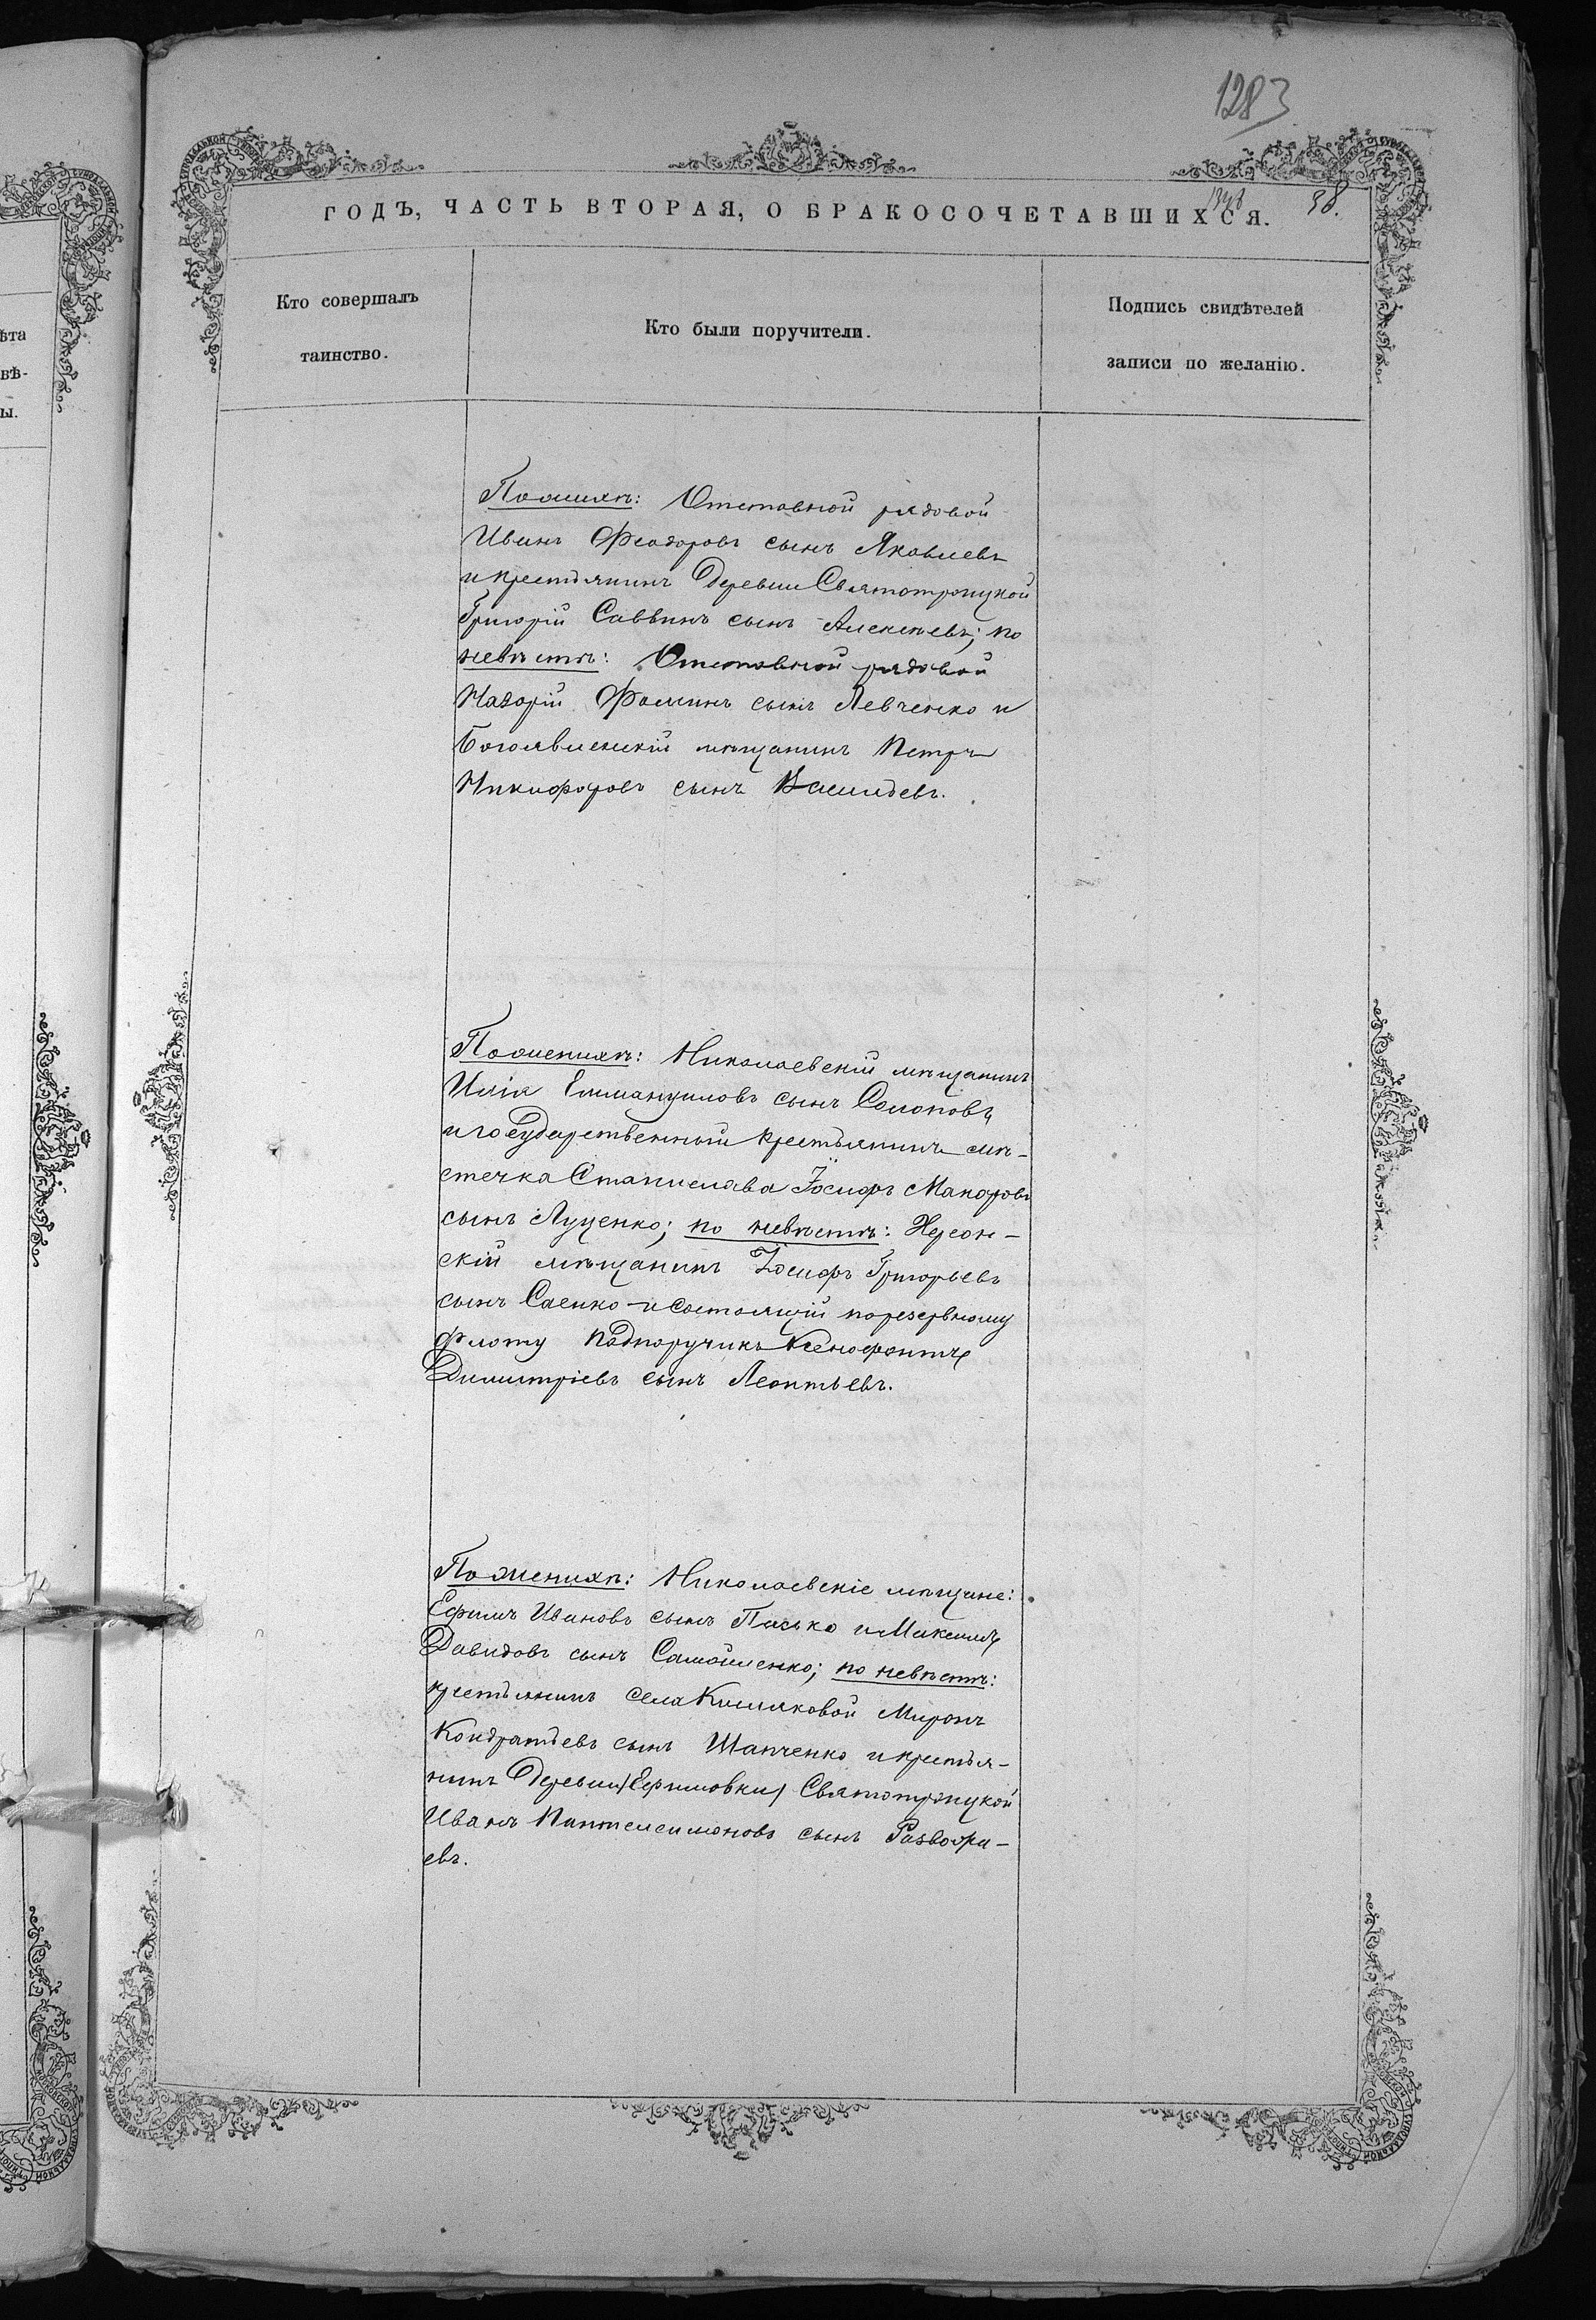 1283
38.
ГОДЪ, ЧАСТЬ ВТОРАЯ, О БРАКОСОЧЕТАВШИХСЯ.
Кто совершалъ
таинство.
Кто были поручители.
Подпись свидѣтелей
записи по желанію.
ѣта
вѣ-
ы.
Отставной рядовой
Иванъ Феодоровъ сынъ Яковлевъ
и крестьянинъ деревни Святотроицкой
Григорій Саввинъ сынъ Алексѣевъ; по
невѣстѣ: Отставной рядовой
Назорій Фоминъ сынъ Левченко и
Богоявленскій мѣщанинъ Петръ
Никифоровъ сынъ
По женихѣ: Николаевскій мѣщанинъ
Илія Еммануиловъ сынъ
и государственный крестьянинъ мѣ-
стечка Станислава Іосифъ Макаровъ
сынъ Луценко; по невѣстѣ: Херсон-
скій мѣщанинъ Іосифъ Григорьевъ
сынъ Саенко и состоящій по резервному
флоту подпоручикъ Ксенофонтъ
Димитріевъ сынъ Леонтьевъ.
По женихѣ: Николаевскіе мѣщане:
Ефимъ Ивановъ сынъ и Максимъ
Давидовъ сынъ Самойленко; по невѣстѣ:
крестьянинъ села Кисляковой Миронъ
Кондратьевъ сынъ Шапченко и крестья-
нинъ деревни /Ефимовки/ Святотроицкой
Иванъ Пантелеимоновъ сынъ
евъ.